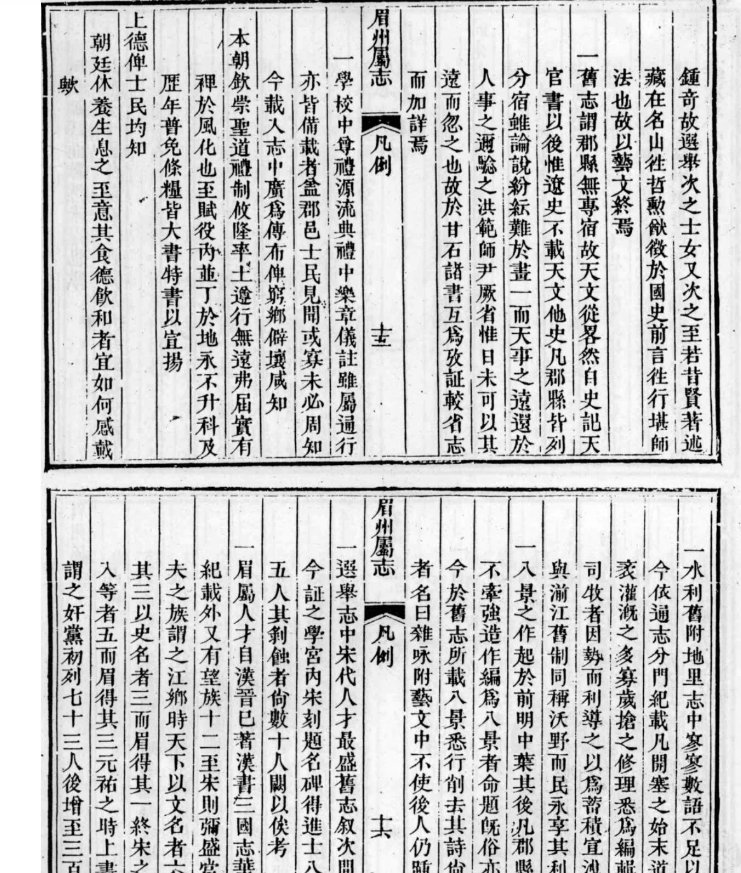 鍾奇故選舉次之士女又次之至若昔賢著述
藏在名山徃哲勲猷徵於國史前言徃行堪師
法也故以藝文終焉
一舊志謂郡縣無專宿故天文從畧然自史記天
官書以後惟遼史不載天文他史凡郡縣皆列
分宿雖論說紛紜難於畫一而天事之遠還於
人事之邇騐之洪範師尹厥省惟日未可以其
遠而忽之也故於甘石諸書互爲攷証較省志
而加詳焉
眉州屬志 凡例 十五
一學校中尊禮源流典禮中樂章儀註雖屬通行
亦皆備載者盖郡邑士民見聞或寡未必周知
今載入志中廣爲傳布俾窮鄉僻壤咸知
本朝欽崇聖道禮制攸隆率土遵行無遠弗届實有
裨於風化也至賦役丙並丁於地永不升科及
歷年普免條糧皆大書特書以宣揚
上德俾士民均知
朝廷休養生息之至意其食德飲和者宜如何感戴
歟
一水利舊附地里志中寥寥數語不足以
今依通志分門紀載凡開塞之始末道
袤灌漑之多寡歲搶之修理悉爲編輯
司牧者因勢而利導之以爲蓄積宜洩
與湔江舊制同稱沃野而民永享其利
一八景之作起於前明中葉其後凡郡縣
不牽強造作編爲八景者命題旣俗亦
今於舊志所載八景悉行削去其詩尙
者名曰雜咏附藝文中不使後人仍踵
眉州屬志 凡例 十六
一選舉志中宋代人才最盛舊志叙次間
今証之學宮內宋刻題名碑得進士八
五人其剝蝕者尙數十人闕以俟考
一眉屬人才自漢晉已著漢書三國志華
紀載外又有望族十二至宋則彌盛當
夫之族謂之江鄉時天下以文名者六
其三以史名者三而眉得其一終宋之
入等者五而眉得其三元祐之時上書
謂之奸黨初列七十三人後增至三百